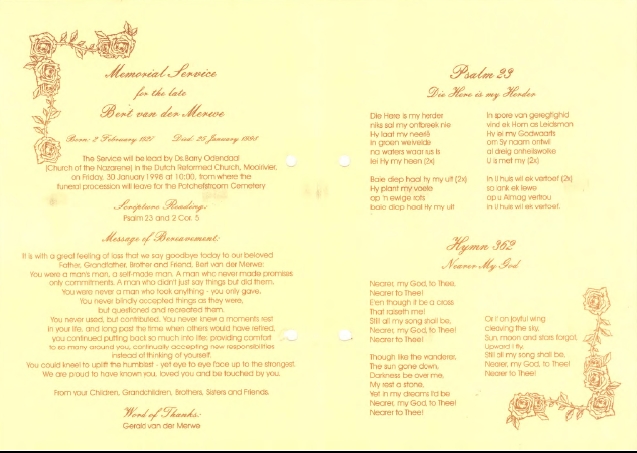 Memorial Service
for the late
Bert van der Merwe
Born: 2 February 1927 Died: 25 January 1998
The Service will be lead by Ds.Barry Odendaal
(Church of the Nazarene) in the Dutch Reformed Church, Mooirivier,
on Friday, 30 January 1998 at 10:00, from where the
funeral procession will leave for the Potchefstroom Cemetery
Scripture Readings:
Psalm 23 and 2 Cor. 5
Message of Bereavement:
It is with a great feeling of loss that we say goodbye today to our beloved
Father, Grandfather, Brother and Friend, Bert van der Merwe:
You were a man's man, a self-made man. A man who never made promises
only commitments. A man who didn't just say things but did them.
You were never a man who took anything - you only gave.
You never blindly accepted things as they were,
but questioned and recreated them.
You never used, but contributed. You never knew a moments rest
in your life, and long past the time when others would have retired,
you continued putting back so much into life; providing comfort
to so many around you, continually accepting new responsibilities
instead of thinking of yourself.
You could kneel to uplift the humblest - yet eye to eye face up to the strongest.
We are proud to have known you, loved you and be touched by you.
From your Children, Grandchildren, Brothers, Sisters and Friends.
Word of Thanks:
Gerald van der Merwe
Psalm 23
Die Here is my Herder
Die Here is my herder
niks sal my ontbreek nie
Hy laat my neerlê
in groen weivelde
na waters waar rus is
lei Hy my heen (2x)
Baie diep haal Hy my uit (2x)
Hy plant my voete
op 'n ewige rots
baie diep haal Hy my uit
In spore van geregtigheid
vind ek Hom as Leidsman
Hy lei my Godwaarts
om Sy naam ontwil
al dreig onheilswolke
U is met my (2x)
In U huis wil ek vertoef (2x)
so lank ek lewe
op U Almag vertrou
in U huis wil ek vertoef.
Hymn 362
Nearer My God
Nearer, my God, to Thee,
Nearer to Thee!
E'en though it be a cross
That raiseth me!
Still all my song shall be,
Nearer, my God, to Thee!
Nearer to Thee!
Though like the wanderer,
The sun gone down,
Darkness be over me,
My rest a stone,
Yet in my dreams I'd be
Nearer, my God, to Thee!
Nearer to Thee!
Or if on joyful wing
cleaving the sky,
Sun, moon and stars forgot,
Upward I fly,
Still all my song shall be,
Nearer, my God, to Thee!
Nearer to Thee!